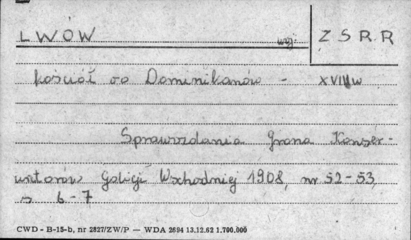 LWÓW woj: Z S R R
kościół oo Dominikanów - XVIII w
Sprawozdania Grona Konser-
watorów Galicji Wschodniej 1908, nr 52-53,
s 6-7
CWD - B-15-b, nr 2827/ZW/P — WDA 2694 13.12.62 1.700.000